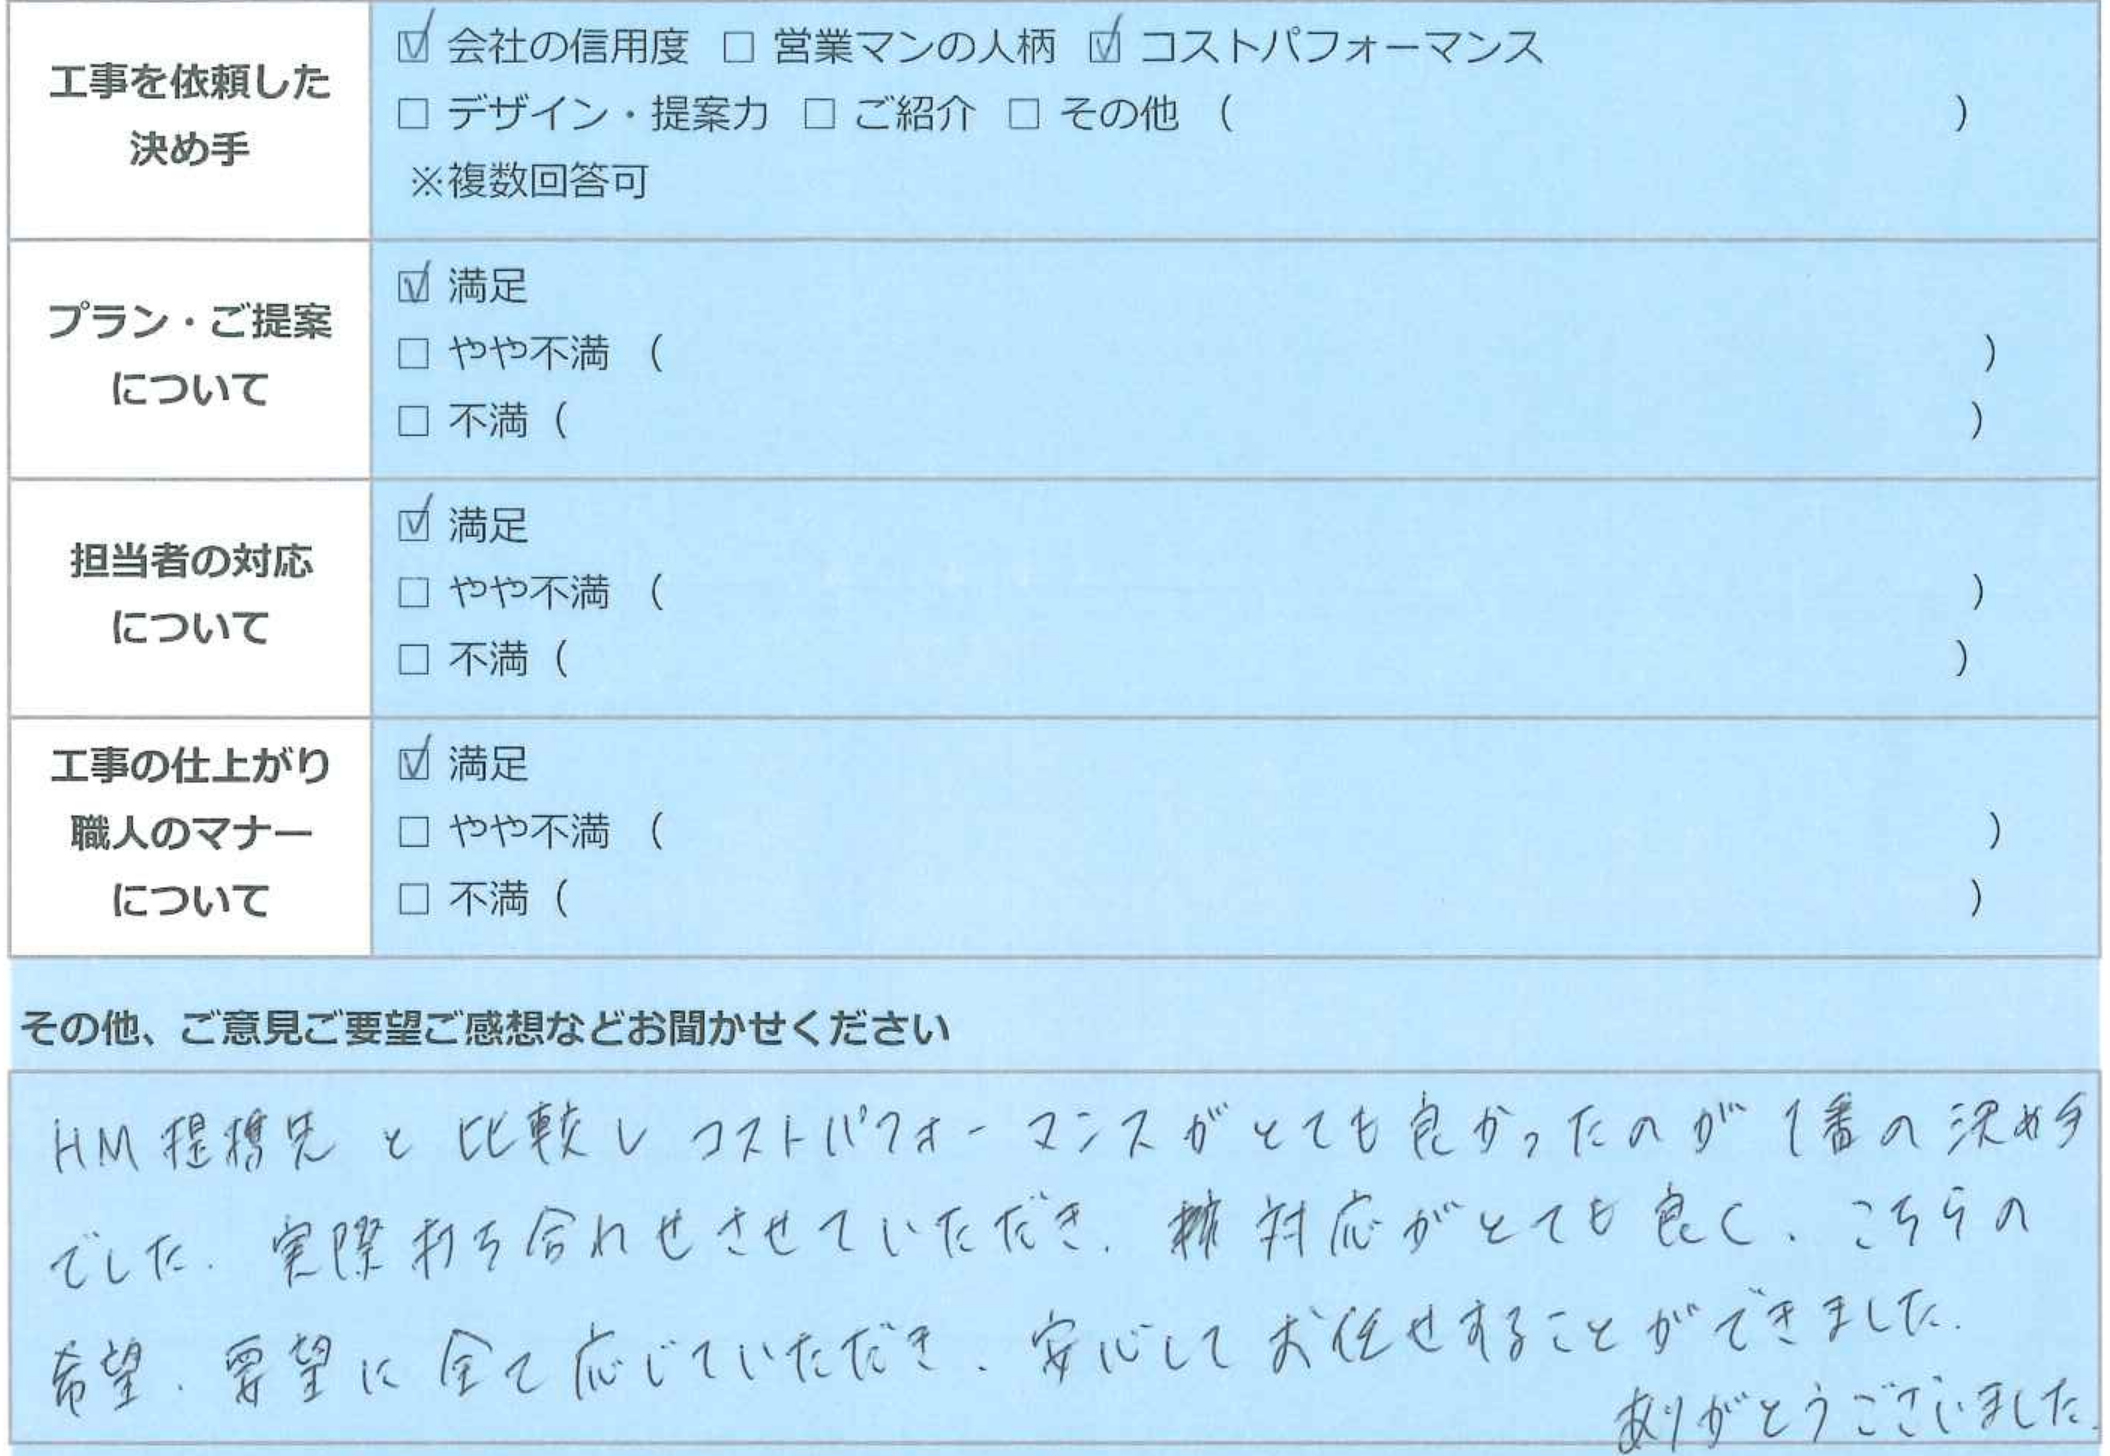 工事を依頼した
決め手
☑ 会社の信用度 □ 営業マンの人柄 ☑ コストパフォーマンス
□ デザイン・提案力 □ ご紹介 □ その他 ( )
※複数回答可
プラン・ご提案
について
☑ 満足
□ やや不満 ( )
□ 不満 ( )
担当者の対応
について
☑ 満足
□ やや不満 ( )
□ 不満 ( )
工事の仕上がり
職人のマナー
について
☑ 満足
□ やや不満 ( )
□ 不満 ( )
その他、ご意見ご要望ご感想などお聞かせください
HM提携先と比較しコストパフォーマンスがとても良かったのが1番の決め手
でした。実際打ち合わせさせていただき、対応がとても良く、こちらの
希望、要望に全て応じていただき、安心してお任せすることができました。
ありがとうございました。